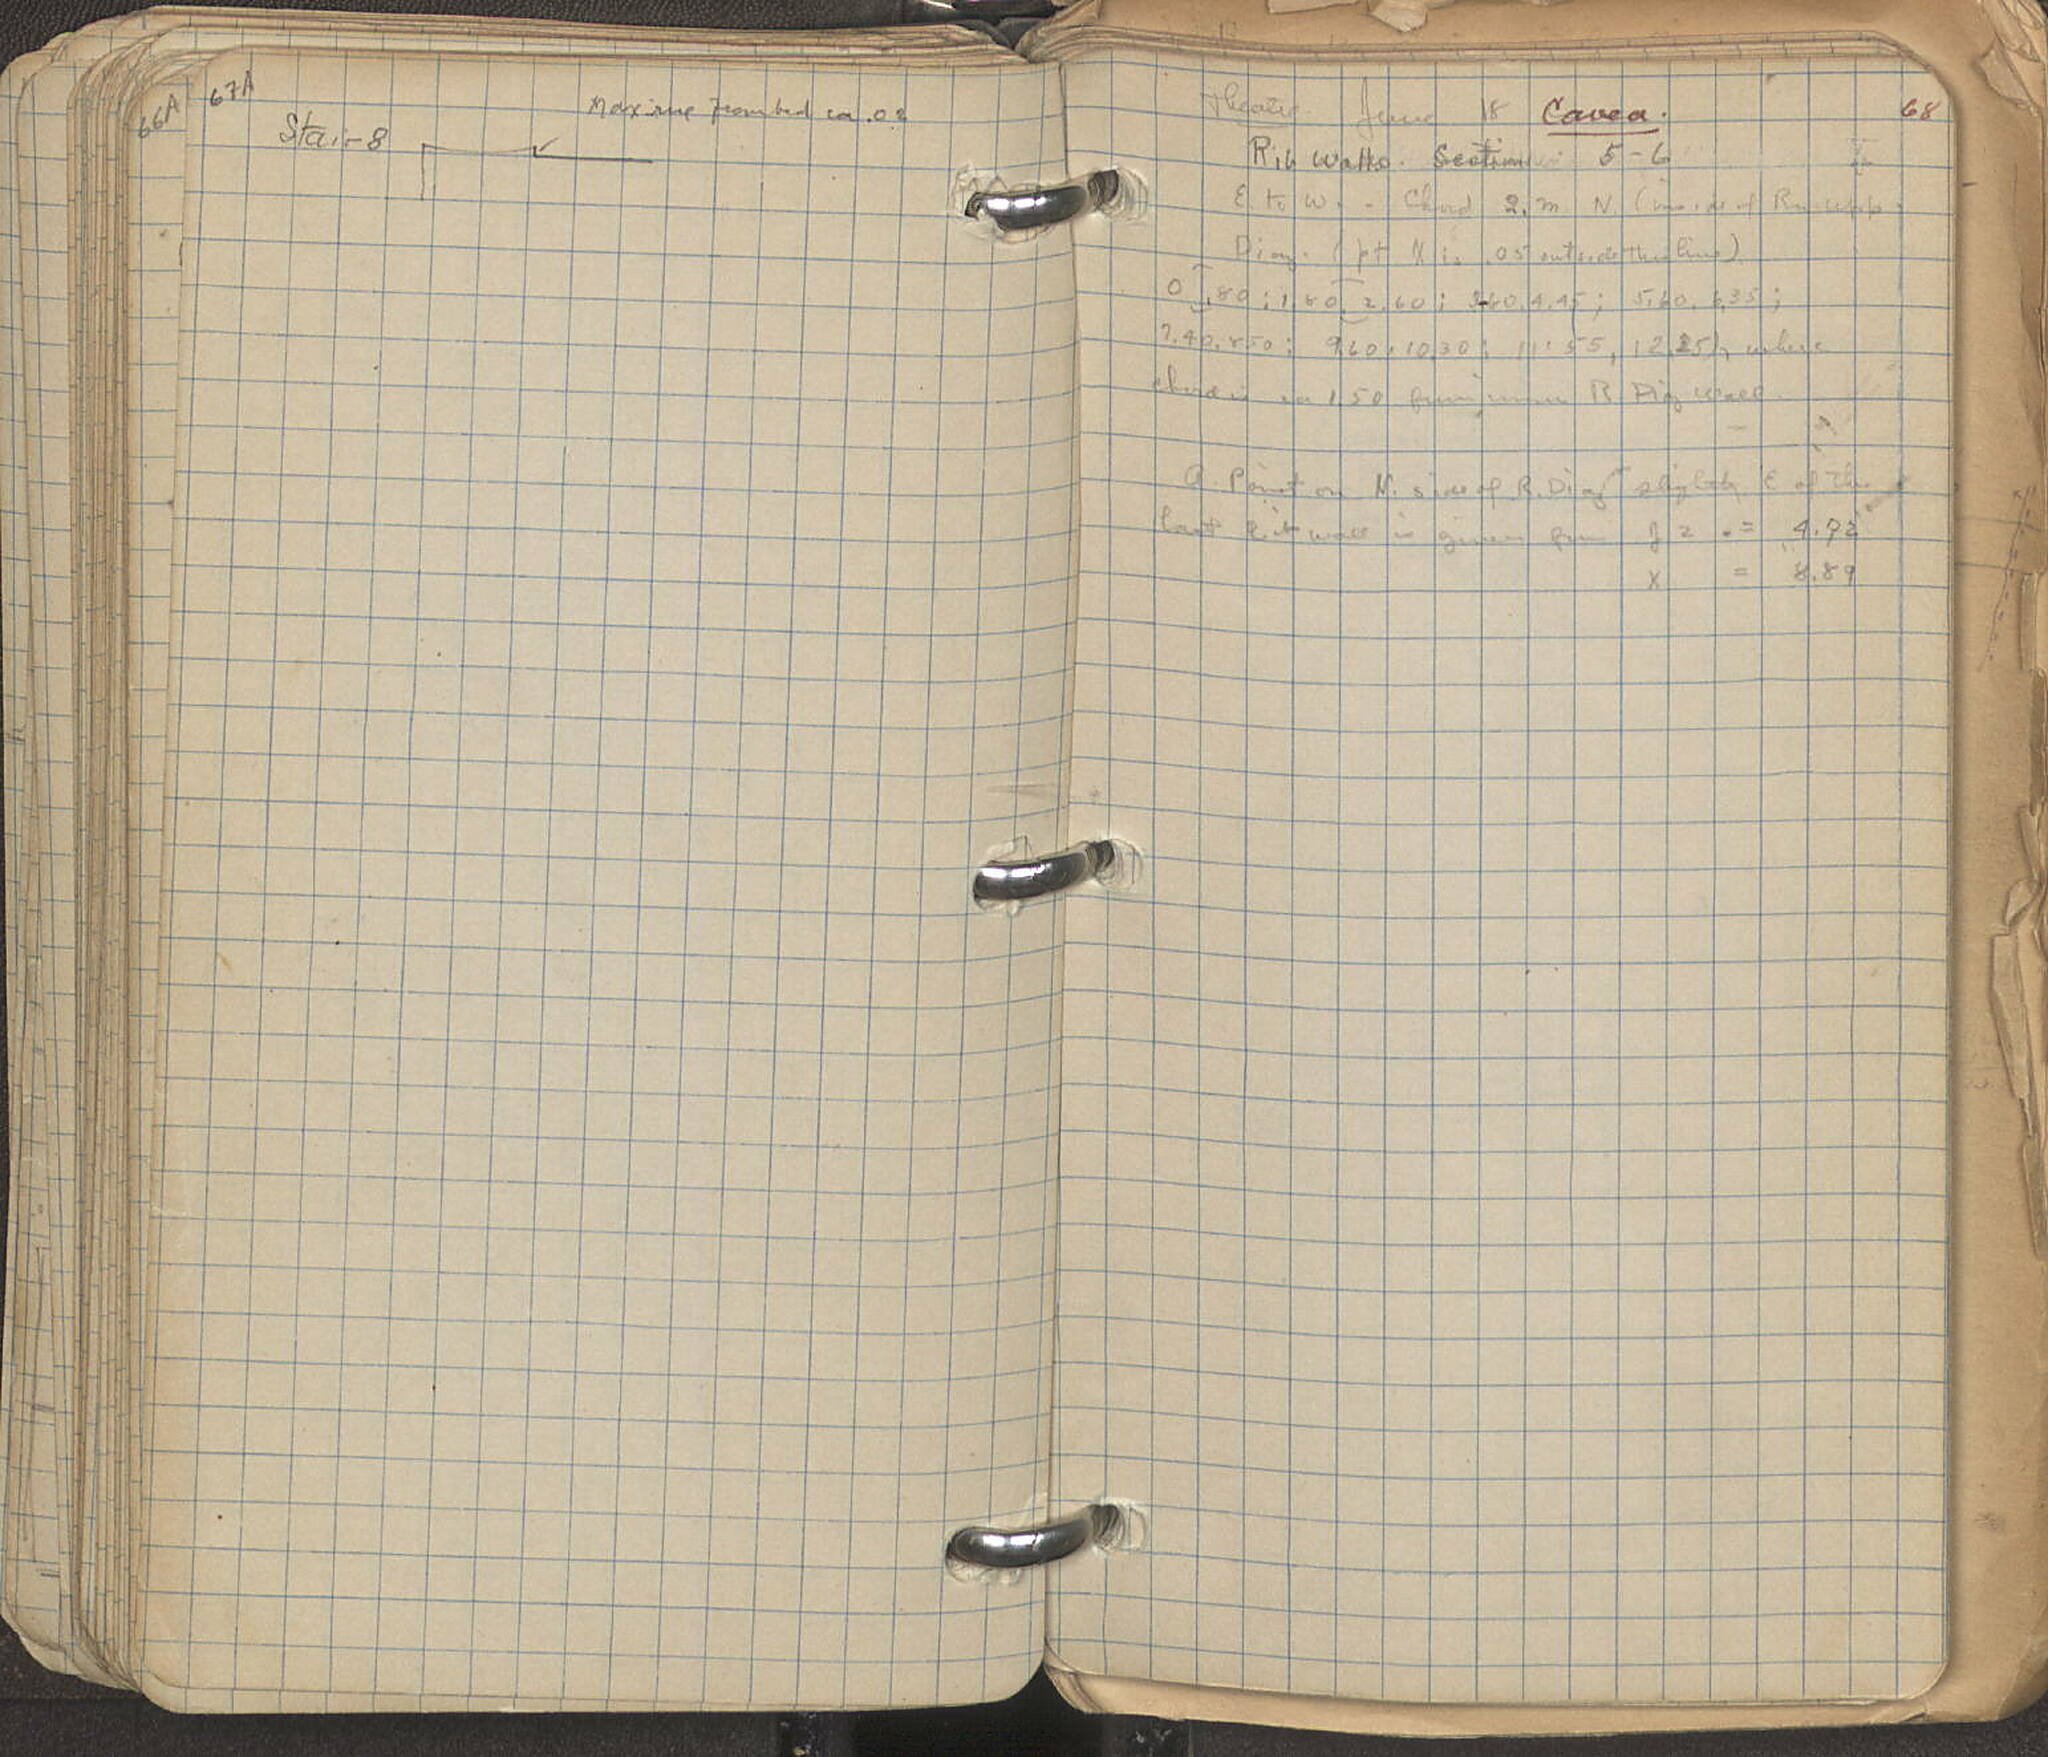 66A
67A
Stair 8
ca .02
Theatre June 18 Cavea. 68
Rib walls. Section 5-6
E. to W. - Chord 2. m. N. (inside of
Diaz. (pt X is .05 outside this line)
0, .80; 1.80, 2.60; 3.60, 4.45; 5.60, 6.35;
7.40, 8.50; 9.60, 10.30; 11.55, 12.25, where
chord is ca 1.50 from inner R Diaz wall.
A. Point on N. side of R. Diaz slightly E of the
last wall is given from z = 4.92
X = 8.89